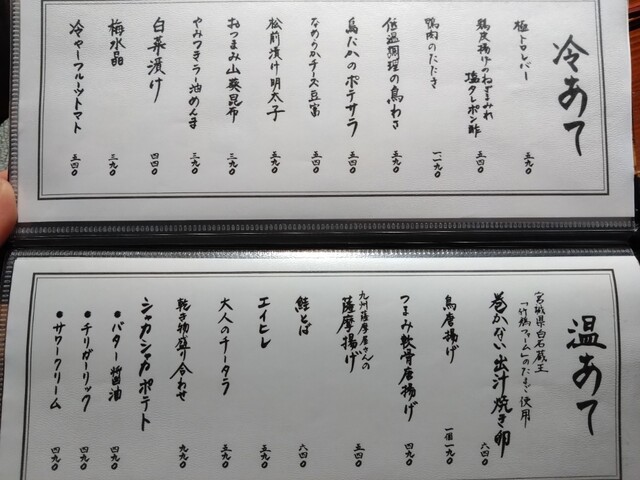 冷あて
極トロレバー 五九〇
鶏皮揚げのねぎまみれ
塩タレポン酢 五四〇
鴨肉のたたき 一一九〇
低温調理の鳥わさ 五九〇
鳥だしのポテサラ 五四〇
なめらかチーズ豆富 五四〇
松前漬け明太子 五九〇
おつまみ山葵昆布 三九〇
やみつきラー油めんま 三九〇
白菜漬け 四四〇
梅水晶 三九〇
冷やしフルーツトマト 五四〇
温あて
宮城県白石蔵王
「竹鶏ファーム」のたまご使用
巻かない出汁焼き卵 六四〇
鳥唐揚げ 一個一九〇
つまみ軟骨唐揚げ 四九〇
九州薩摩屋さんの
薩摩揚げ 五四〇
鮭とば 六四〇
エイヒレ 五九〇
大人のチータラ 五九〇
乾き物盛り合わせ 九九〇
シャカシャカポテト
●バター醤油 四九〇
●チリガーリック 四九〇
●サワークリーム 四九〇